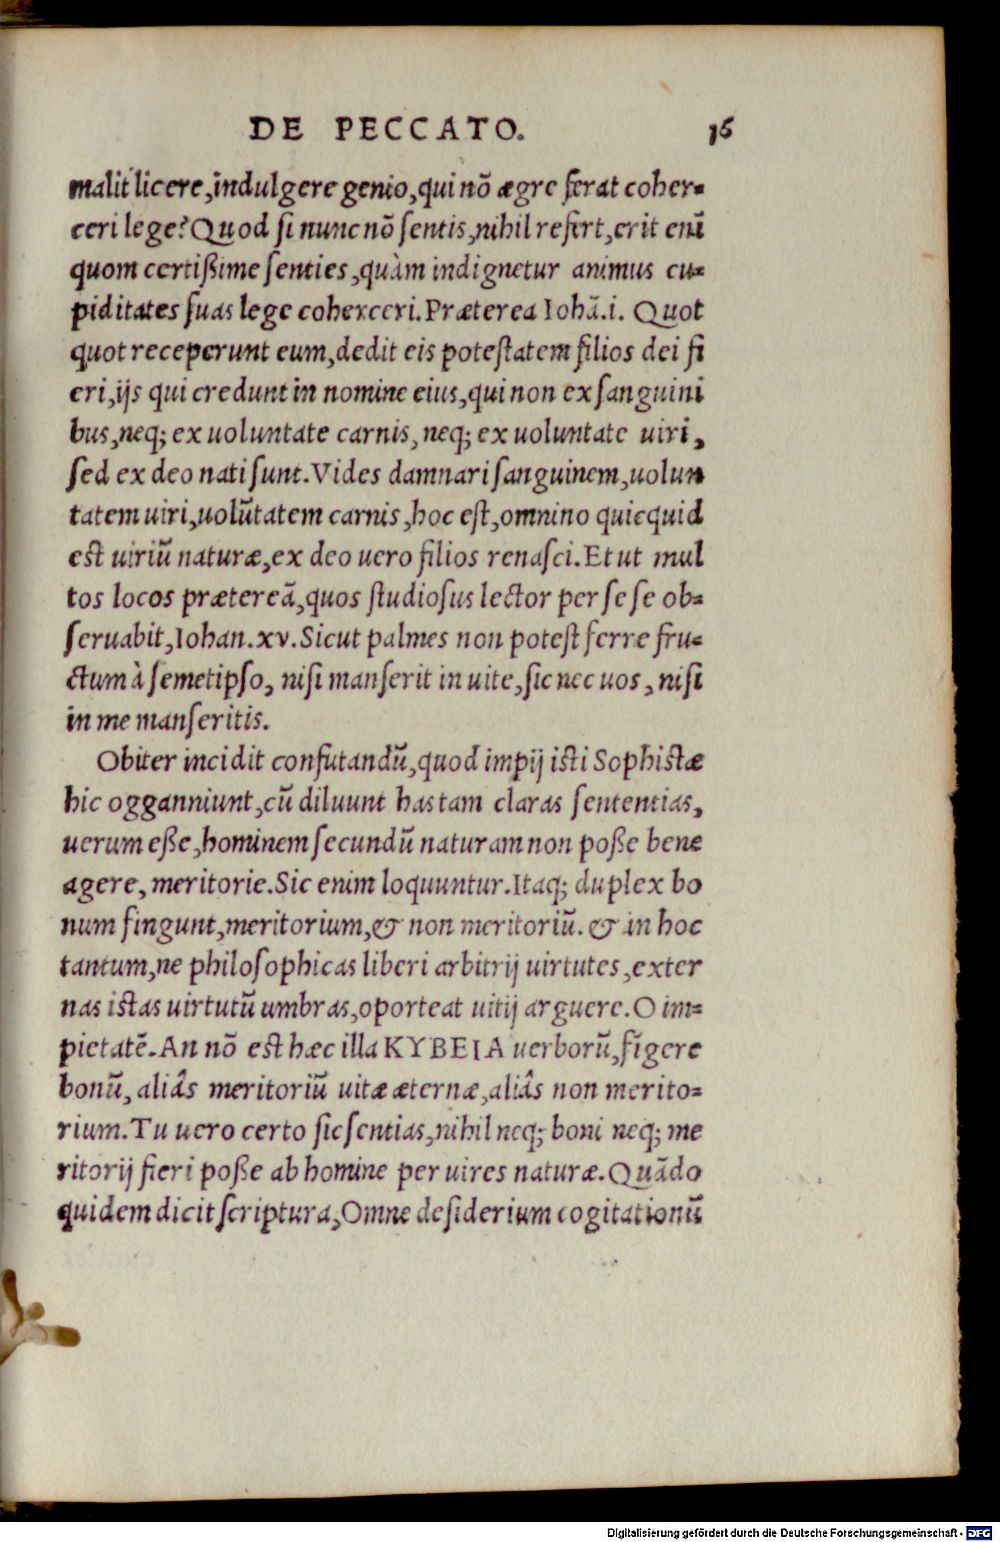 DE PECCATO. 16
malit licere, indulgere genio, qui nõ ægre ferat coher=
ceri lege? Quod ſi nunc nõ ſentis, nihil refert, erit enĩ
quom certißime ſenties, quàm indignetur animus cu=
piditates ſuas lege coherceri. Præterea Iohã. i. Quot
quot receperunt eum, dedit eis poteſtatem filios dei fi
eri, ijs qui credunt in nomine eius, qui non ex ſanguini
bus, neq; ex uoluntate carnis, neq; ex uoluntate uiri,
ſed ex deo nati ſunt. Vides damnari ſanguinem, uolun
tatem uiri, uolũtatem carnis, hoc eſt, omnino quicquid
eſt uiriũ naturæ, ex deo uero filios renaſci. Et ut mul
tos locos prætereã, quos ſtudioſus lector per ſe ſe ob=
ſeruabit, Iohan. xv. Sicut palmes non poteſt ferre fru=
ctum à ſemetipſo, niſi manſerit in uite, ſic nec uos, niſi
in me manſeritis.
Obiter incidit confutandũ, quod impij iſti Sophiſtæ
hic ogganniunt, cũ diluunt has tam claras ſententias,
uerum eße, hominem ſecundũ naturam non poße bene
agere, meritorie. Sic enim loquuntur. Itaq; duplex bo
num fingunt, meritorium, & non meritoriũ. & in hoc
tantum, ne philoſophicas liberi arbitrij uirtutes, exter
nas iſtas uirtutũ umbras, oporteat uitij arguere. O im=
pietatẽ. An nõ eſt hæc illa KYBEIA uerborũ, fĩgere
bonũ, aliâs meritoriũ uitæ æternæ, aliâs non merito=
rium. Tu uero certo ſic ſentias, nihil neq; boni neq; me
ritorij fieri poße ab homine per uires naturæ. Quãdo
quidem dicit ſcriptura, Omne deſiderium cogitationũ
Digitalisierung gefördert durch die Deutsche Forschungsgemeinschaft - DFG